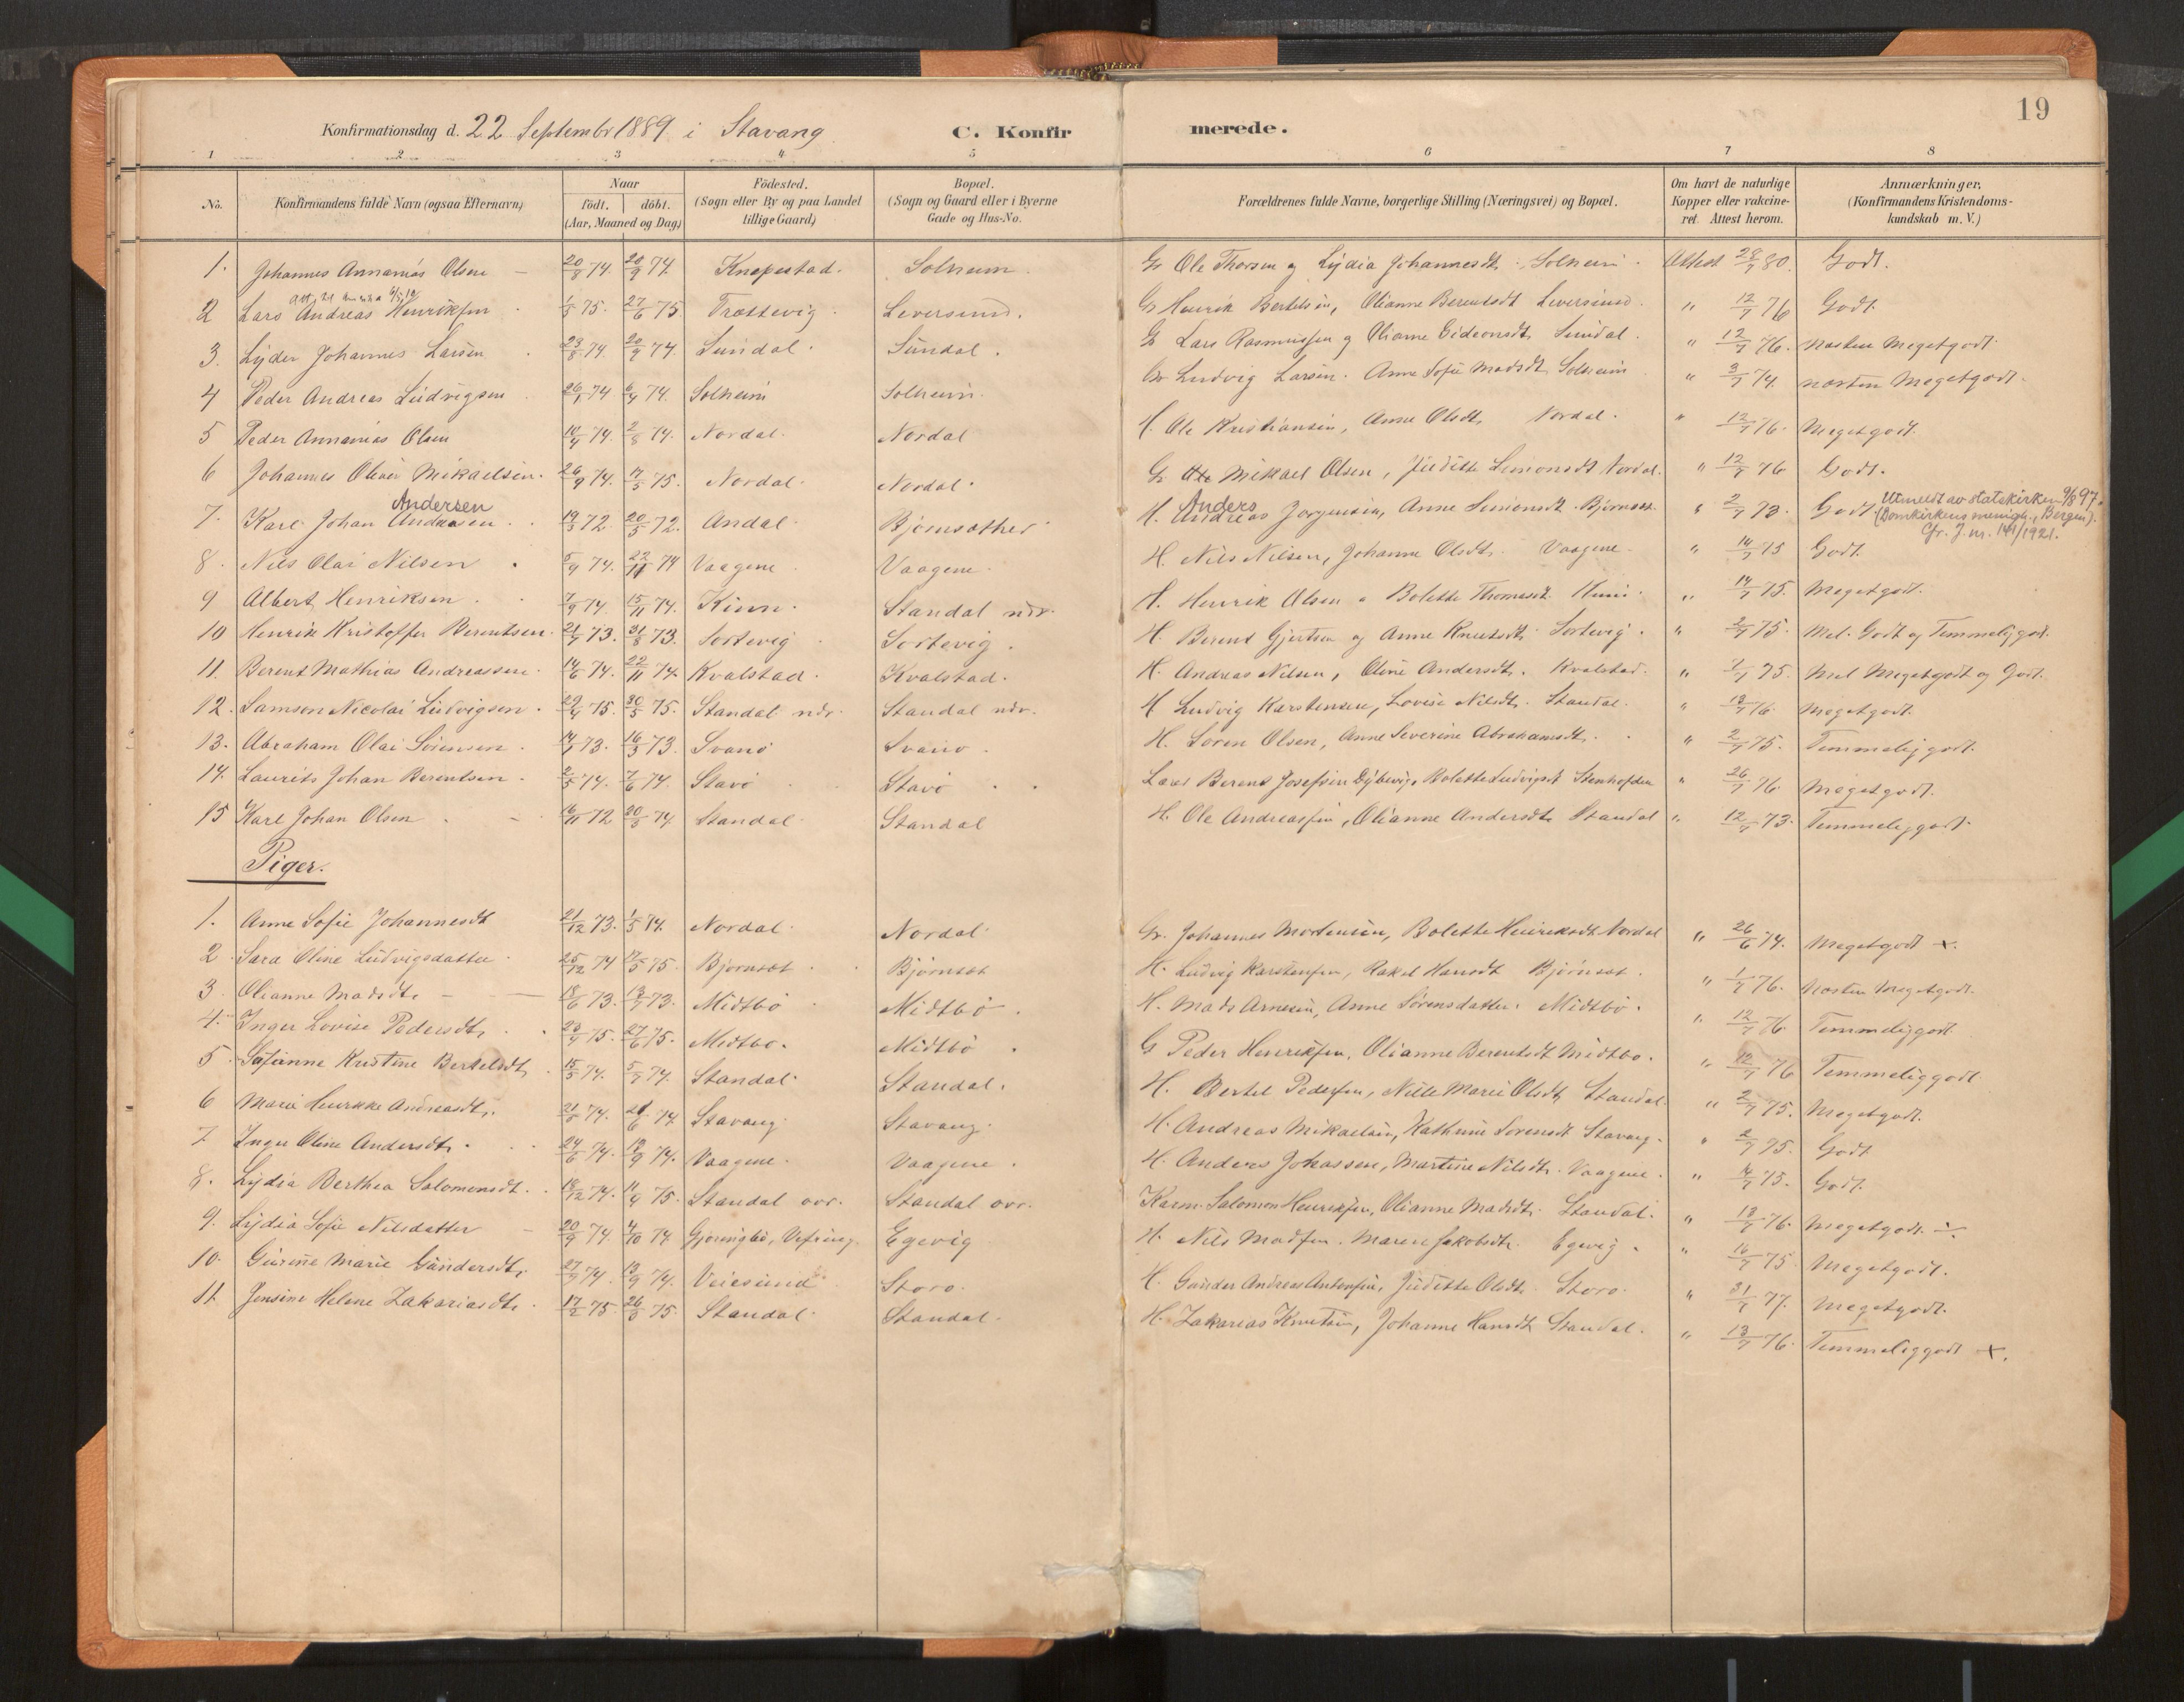 19
Konfirmationsdag d. 22 Septembr 1889 i Stavang C. Konfirmerede.
1 2 3 4 5 6 7 8
No. Konfirmandens fulde Navn (ogsaa Efternavn) Naar födt. döbt. (Aar, Maaned og Dag) Födested. (Sogn eller By og paa Landet tillige Gaard) Bopæl. (Sogn og Gaard eller i Byerne Gade og Hus-No. Forældrenes fulde Navne, borgerlige Stilling (Næringsvei) og Bopæl. Om havt de naturlige Kopper eller vakcineret. Attest herom. Anmærkninger, (Konfirmandens Kristendomskundskab m. V.)
1. Johannes Annanias Olsen 20/8 74. 20/9 74 Knapstad. Solheim. G Ole Thorsen og Lydia Johannesdt. Solheim. Attest 28/7 80. Godt.
2 Lars Andreas Henriksen 1/5 75. 27/6 75 Trættevig. Leversund. G Henrik Bertelsen, Olianne Berentsdt Leversund. " 12/7 76 Godt.
3. Lyder Johannes Larsen 23/8 74. 20/9 74. Sundal. Sundal. G Lars Rasmussen og Olianne Gideonsdt. Sundal. " 12/7 76. næsten Megetgodt.
4 Peder Andreas Ludvigsen 26/1 74 6/4 74. Solheim Solheim. Gr Ludvig Larsen. Anne Sofie Madsdt, Solheim " 3/7 74. næsten Megetgodt.
5 Peder Annanias Olsen 10/7 74. 2/8 74. Nordal. Nordal H. Ole Kristiansen, Anne Olsdt, Nordal. " 12/7 76. Megetgodt.
6 Johannes Oliver Mikaelsen. 26/9 74. 17/5 75. Nordal. Nordal. G Mikael Olsen, Juditte Simonsdt Nordal. " 12/7 76 Godt.
7. Karl Johan Andersen 19/3 72. 20/5 72. Andal. Bjørnsæther H. Anders Jørgensen, Anne Simonsdt. Bjørnsæt. " 2/7 73. Godt Utmeldt av statskirken 9/8 97. (Domkirkens menigh., Bergen). Cfr. J. nr. 141/1921.
8. Nils Olai Nilsen 5/9 74. 22/11 74 Vaagene. Vaagene. H. Nils Nilsen, Johanne Olsdt. Vaagene. " 14/7 75 Godt.
9 Albert Henriksen. 7/9 74. 15/11 74. Kinn. Standal ndr. H. Henrik Olsen " Bolette Thomasdt. " 14/7 75. Megetgodt.
10 Henrik Kristoffer Berentsen. 21/7 73. 31/8 73. Sortevig Sortevig. H. Berent Gjertsen og Anne Knutsdt. Sortevig. " 2/7 75. Mel. Godt og Temmeliggodt.
11. Berent Mathias Andreassen. 14/6 74. 22/11 74. Kvalstad. Kvalstad. H. Andreas Nilsen, Oline Andersdt. Kvalstad. " 2/7 75. Mel Megetgodt og Godt.
12. Samson Nicolai Ludvigsen. 29/4 75. 30/5 75. Standal ndr. Standal ndr. H Ludvig Karstensen, Lovise Nilsdt. Standal. " 13/7 76. Megetgodt.
13. Abraham Olai Sörensen. 14/1 73. 16/3 73. Svanö Svanö. H. Soren Olsen, Anne Severine Abrahamsdt. " 2/7 75. Temmeliggodt.
14. Laurits Johan Berentsen. 2/5 74. 7/6 74. Stavö Stavö Berent Josefsen Dybevig, Bolette Ludvigsdt Stenhofden " 26/7 76. Megetgodt.
15 Karl Johan Olsen 16/11 72 20/5 74 Standal Standal H. Ole Andreassen, Olianne Andersdt. Standal " 12/7 73. Temmeliggodt.
Piger.
1. Anne Sofie Johannesdt 21/12 73. 1/5 74. Nordal. Nordal. Gr. Johannes Mortensen, Bolette Henriksdt Nordal " 26/6 74. Megetgodt +.
2. Sara Oline Ludvigsdatter. 25/12 74 17/5 75. Bjørnset Bjørnset H. Ludvig Karstensen, Rakel Hansdt Bjørnset. " 1/7 76. Næsten Megetgodt.
3. Olianne Madsdt. 18/6 73. 13/7 73. Midtbö Midtbö. H. Mads Arnesen, Anne Sörensdatter. Midtbö. " 12/7 76 Temmeliggodt
4. Inger Lovise Pedersdt, 23/4 75. 27/6 75. Midtbö. Midtbö. G Peder Henriksen, Olianne Berentsdt Midtbö. " 12/7 76 Temmeliggodt.
5. Sofianne Kristine Bertelsdt, 15/5 74. 5/7 74. Standal. Standal. H. Bertel Pedersen, Nille Marie Olsdt, Standal. " 2/7 75. Megetgodt.
6 Marie Henrikke Andreasdt. 21/5 74. 21/6 74 Stavang. Stavang. H. Andreas Mikaelsen, Kathrine Sorensdt Stavang. " 2/7 75. Godt
7 Inger Oline Andersdt. 24/6 74. 13/9 74. Vaagene. Vaagene. H. Anders Johassen, Martine Nilsdt. Vaagene. " 14/7 75. Godt.
8. Lydia Berthea Salomonsdt. 18/12 74. 11/4 75. Standal ovr. Standal ovr. Salomon Henriksen, Olianne Madsdt. Standal. " 13/7 76. Megetgodt.
9. Lydia Sofie Nilsdatter 20/9 74 4/10 74 Gjøringbö, Vefring. Egevig H. Nils Madsen. Maren Jakobsdt. Egevig. " 16/7 75 Megetgodt.
10. Gurine Marie Gundersdt, 27/7 74. 13/9 74. Veiesund Storo. H. Gunder Andreas Antonsen, Juditte Olsdt. Storo. " 31/7 77. Megetgodt.
11. Jensine Helene Zakariasdt. 17/2 75. 26/3 75 Standal Standal. H. Zakarias Knutsen, Johanne Hansdt Standal. " 13/7 76. Temmeliggodt +.